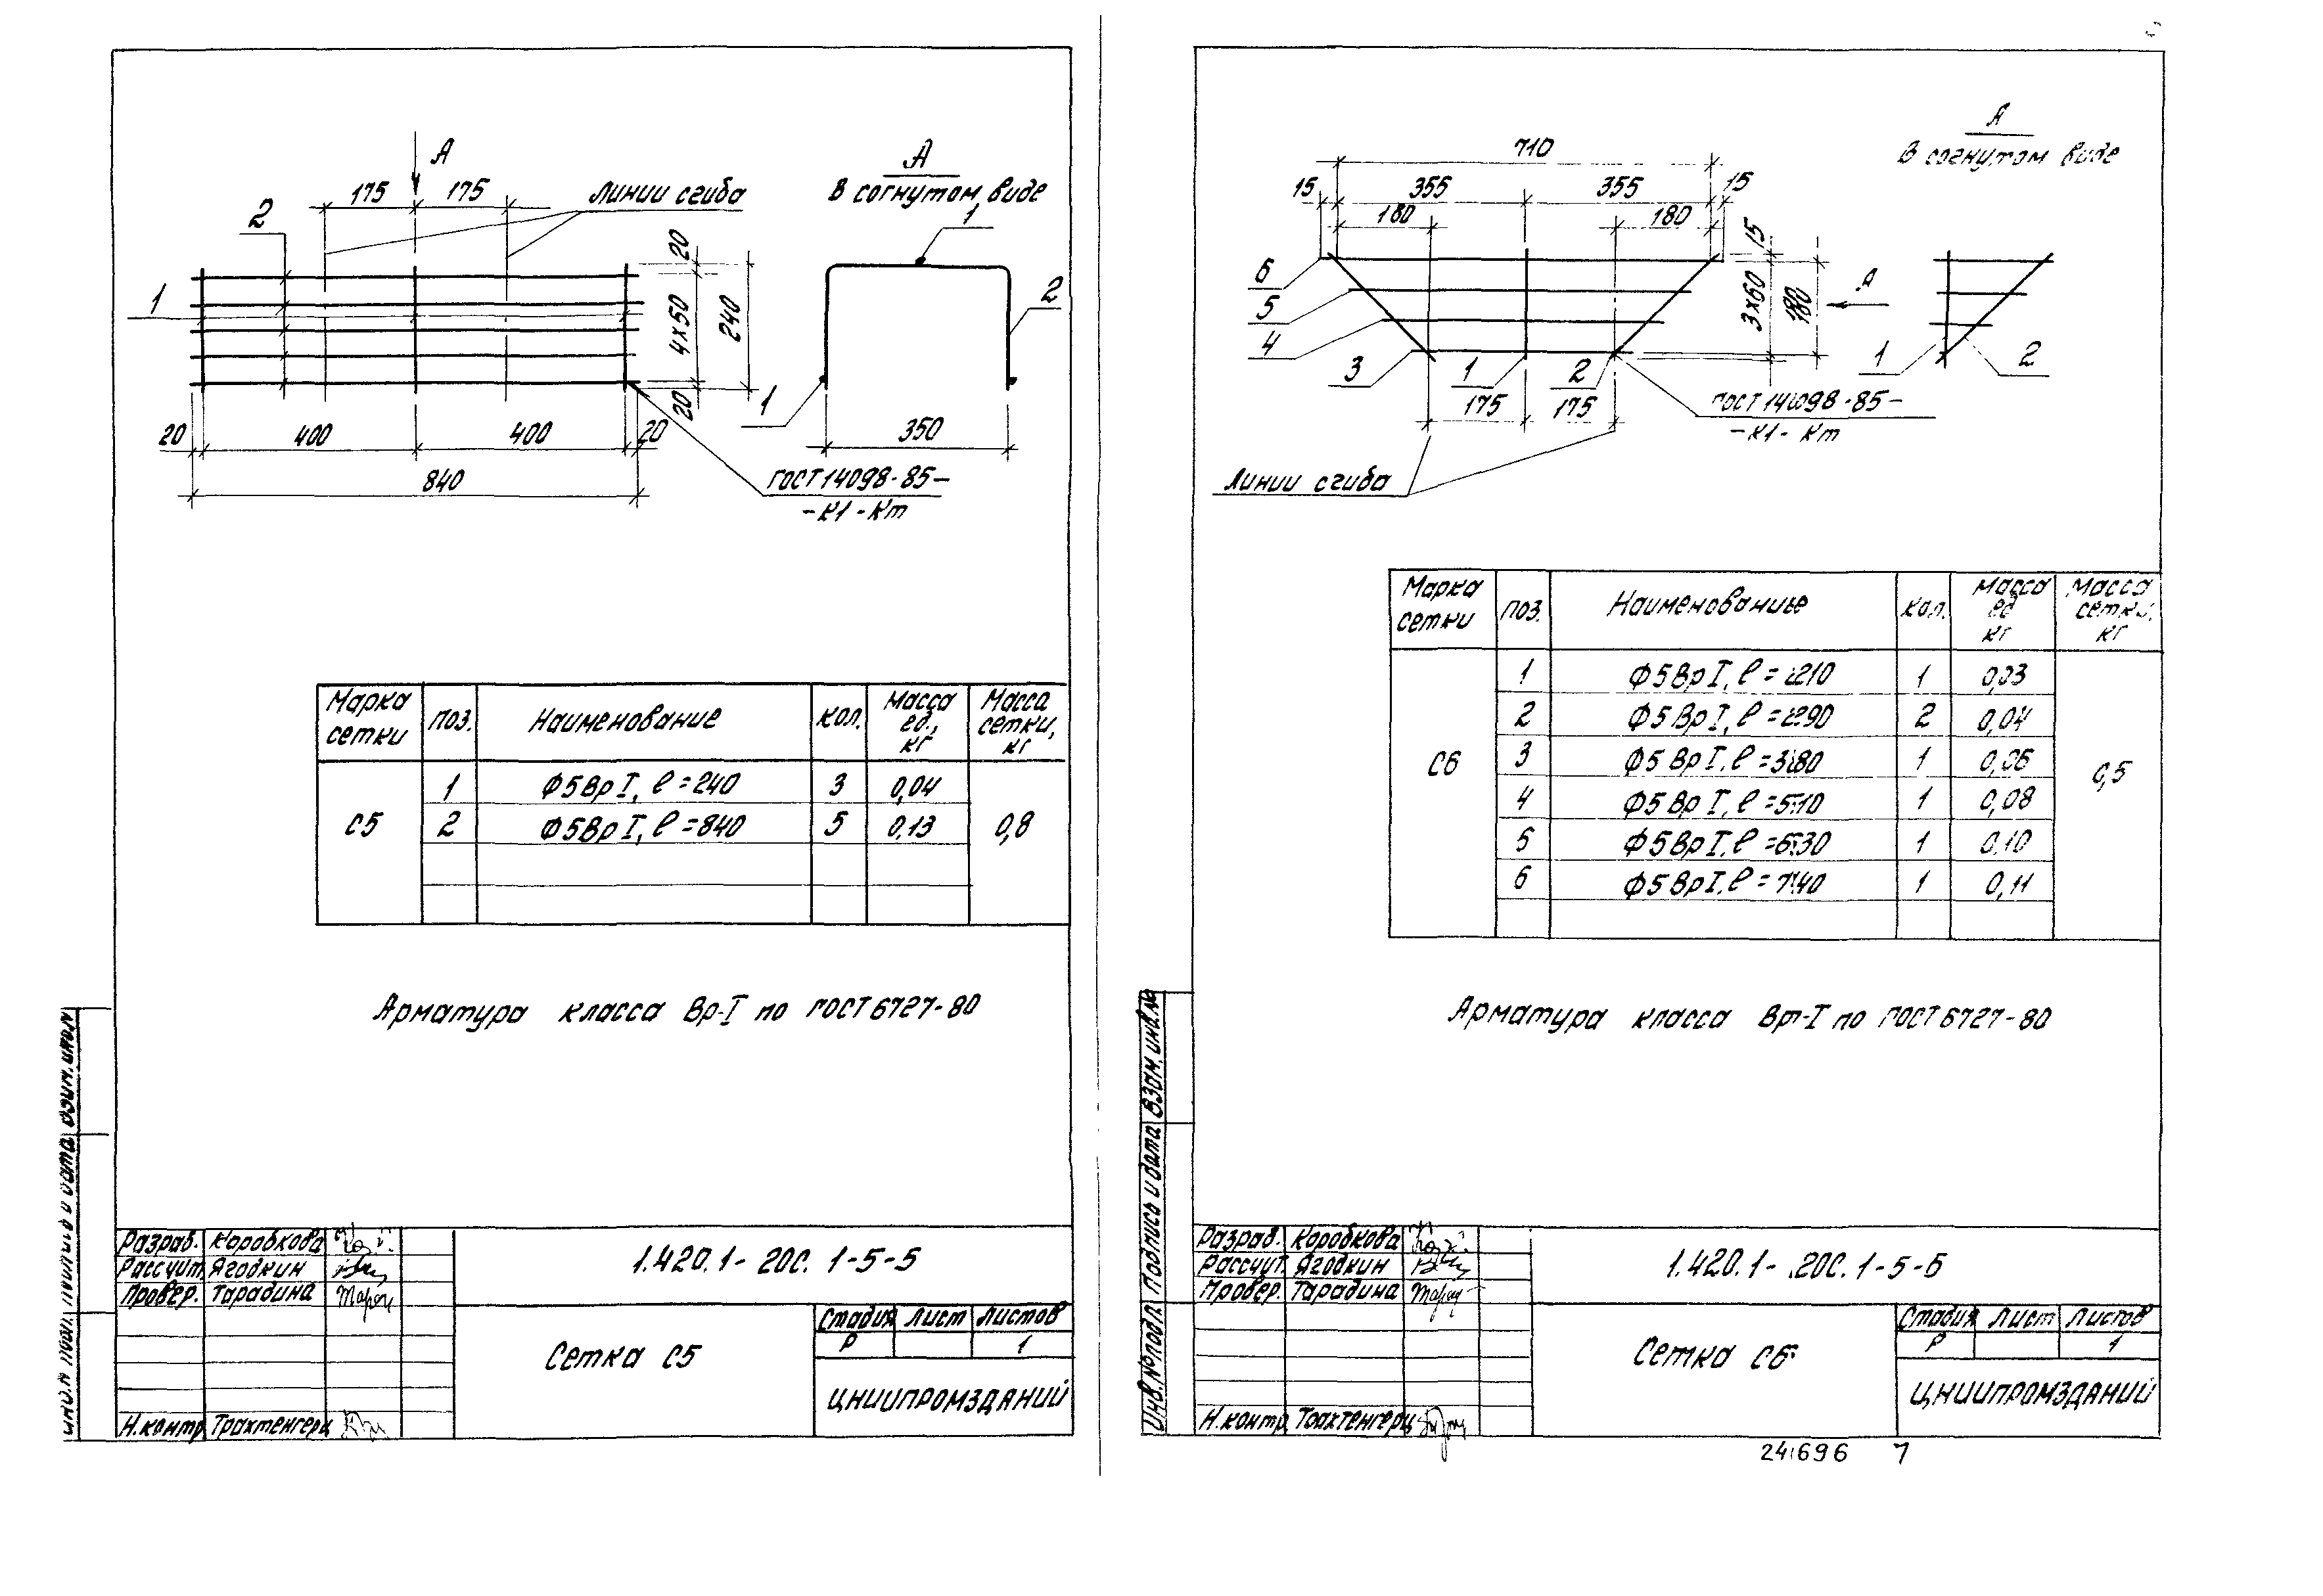 А
175 175
Линии сгиба
2
1
20
4×50
20
240
20 400 400 20
840
ГОСТ 14098-85-
-К1-Кт
А
В согнутом виде
1
2
1
350
Марка сетки Поз. Наименование Кол. Масса ед., кг Масса сетки, кг
С5
1 Ф5ВрI, ℓ=240 3 0,04
2 Ф5ВрI, ℓ=840 5 0,13
0,8
Арматура класса Вр-I по ГОСТ 6727-80
Разраб. Коробкова
Рассчит. Ягодкин
Провер. Тарадина
Н.контр. Трахтенгерц
1.420.1-20с. 1-5-5
Сетка С5
Стадия Лист Листов
Р 1
ЦНИИПРОМЗДАНИЙ
710
15 355 355 15
180 180
6
5
4
3
1
2
175 175
15
3×60
180
А
ГОСТ 14098-85-
-К1-Кт
Линии сгиба
А
В согнутом виде
1
2
Марка сетки Поз. Наименование Кол. Масса ед кг Масса сетки, кг
С6
1 Ф5ВрI, ℓ=210 1 0,03
2 Ф5ВрI, ℓ=290 2 0,04
3 Ф5ВрI, ℓ=380 1 0,06
4 Ф5ВрI, ℓ=510 1 0,08
5 Ф5ВрI, ℓ=630 1 0,10
6 Ф5ВрI, ℓ=740 1 0,11
0,5
Арматура класса Вр-I по ГОСТ 6727-80
Инв.№подл. Подпись и дата Взам.инв.№
Разраб. Коробкова
Рассчит. Ягодкин
Провер. Тарадина
Н.контр. Трахтенгерц
1.420.1-20с. 1-5-6
Сетка С6
Стадия Лист Листов
Р 1
ЦНИИПРОМЗДАНИЙ
24696 7